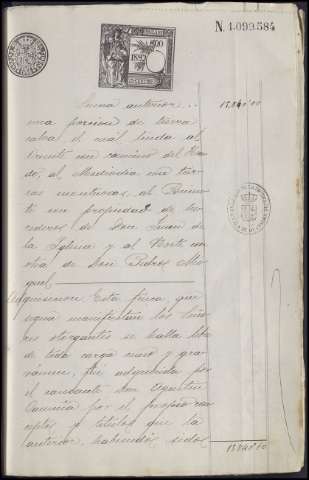 N. 1.099.584
Suma anterior . . 
una porcion de tierra
calva, el cual linda al
Oriente con camino del Va-
do; al Mediodia con tier-
ras montuosas, al Ponien-
te con propiedad de he-
rederos de Don Juan de
la Iglesia y al Norte con
otra de Don Pedro Mi-
guel
Adquisicion. Esta finca, que
segun manifiestan los Seño-
res otorgantes se halla libre
de toda carga y gra-
vámen, fué adquirida por
el causante Don Agustin
por el propio con-
cepto y titulos que la
anterior, habiendo sido